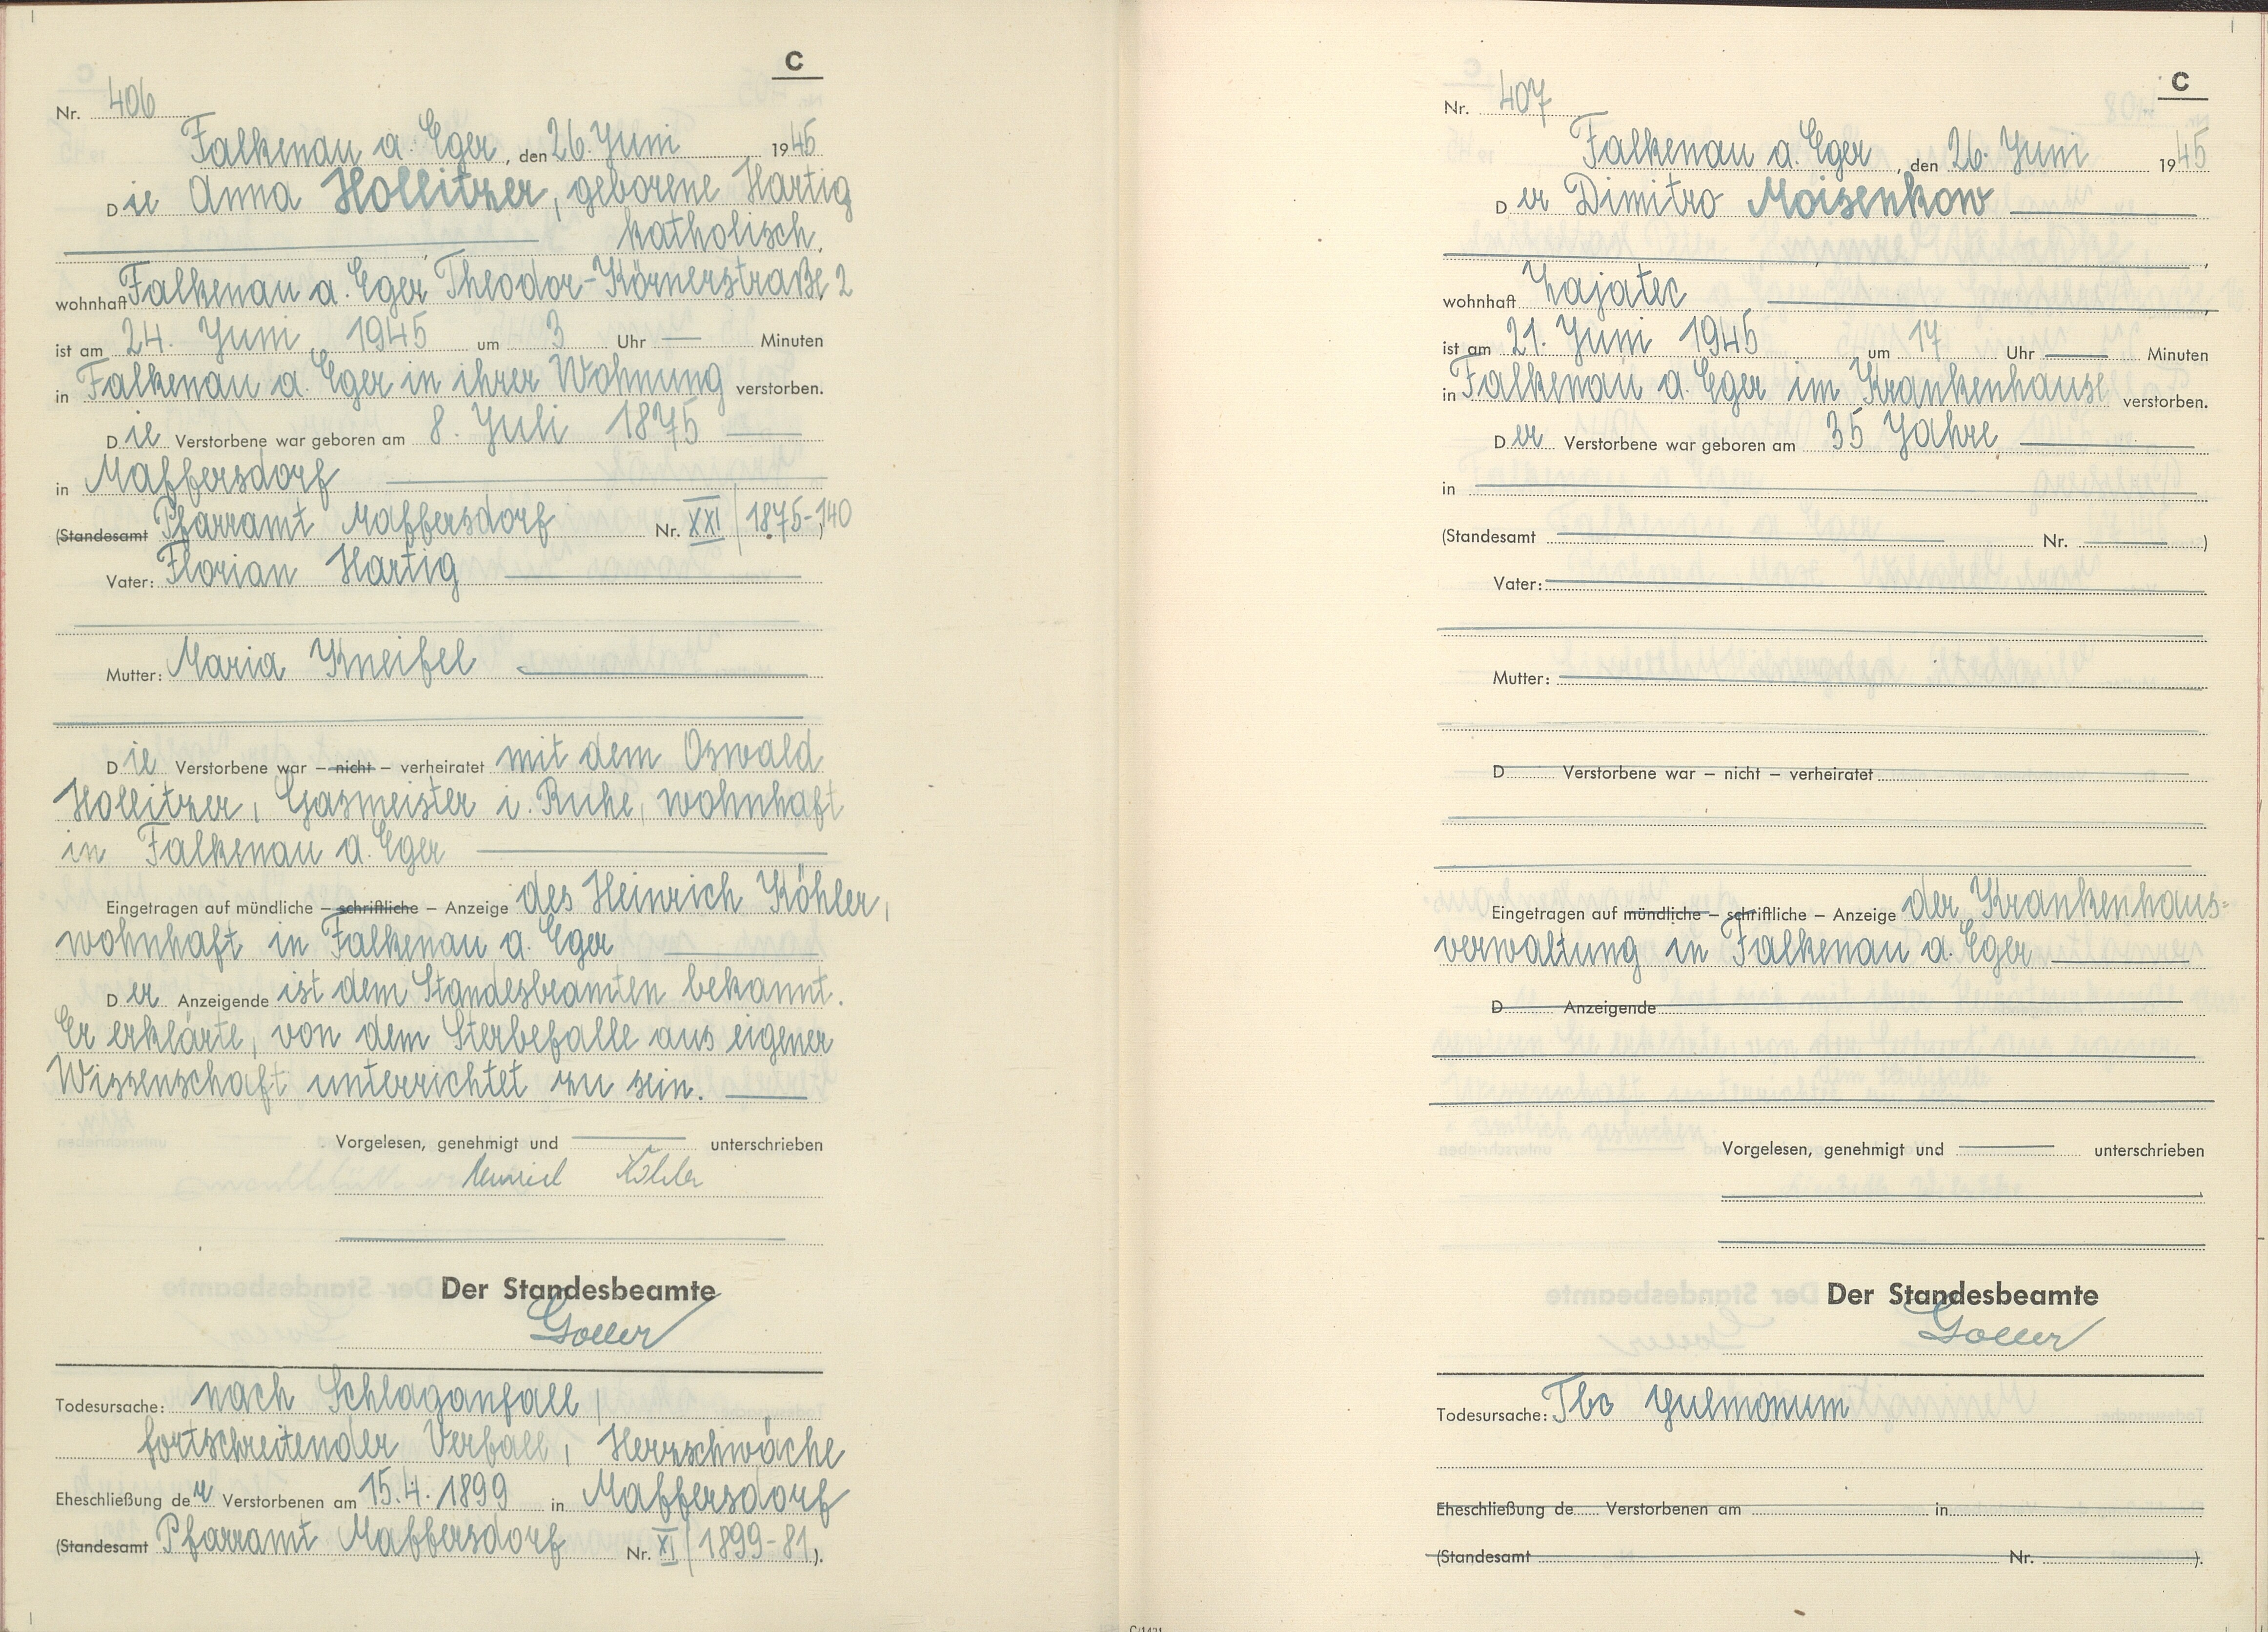 C
Nr. 406
Falkenau a. Eger, den 26. Juni 1945
Die Anna Hollitzer, geborene Hartig
katholisch,
wohnhaft Falkenau a. Eger Theodor-Körnerstraße 2
ist am 24. Juni 1945 um 3 Uhr — Minuten
in Falkenau a. Eger in ihrer Wohnung verstorben.
Die Verstorbene war geboren am 8. Juli 1875
in Maffersdorf
(Standesamt Pfarramt Maffersdorf Nr. XXI/1875-140
Vater: Florian Hartig
Mutter: Maria Kneifel
Die Verstorbene war – nicht – verheiratet mit dem Oswald
Hollitzer, Gasmeister i. Ruhe, wohnhaft
in Falkenau a. Eger
Eingetragen auf mündliche – schriftliche – Anzeige des Heinrich Köhler,
wohnhaft in Falkenau a. Eger
Der Anzeigende ist dem Standesbeamten bekannt.
Er erklärte, von dem Sterbefalle aus eigener
Wissenschaft unterrichtet zu sein.
Vorgelesen, genehmigt und — unterschrieben
Heinrich Köhler
Der Standesbeamte
Goller
Todesursache: nach Schlaganfall,
fortschreitender Verfall, Herzschwäche
Eheschließung der Verstorbenen am 15.4.1899 in Maffersdorf
(Standesamt Pfarramt Maffersdorf Nr. XI/1899-81).
C
Nr. 407
Falkenau a. Eger, den 26. Juni 1945
Der Dimitro Moisenkow
wohnhaft Zajatec
ist am 21. Juni 1945 um 17 Uhr — Minuten
in Falkenau a. Eger im Krankenhause verstorben.
Der Verstorbene war geboren am 35 Jahre,
in
(Standesamt Nr. )
Vater:
Mutter:
D Verstorbene war – nicht – verheiratet
Eingetragen auf mündliche – schriftliche – Anzeige der Krankenhaus-
verwaltung in Falkenau a. Eger
D Anzeigende
Vorgelesen, genehmigt und — unterschrieben
Der Standesbeamte
Goller
Todesursache: Tbc pulmonum
Eheschließung de Verstorbenen am in
(Standesamt Nr. ).